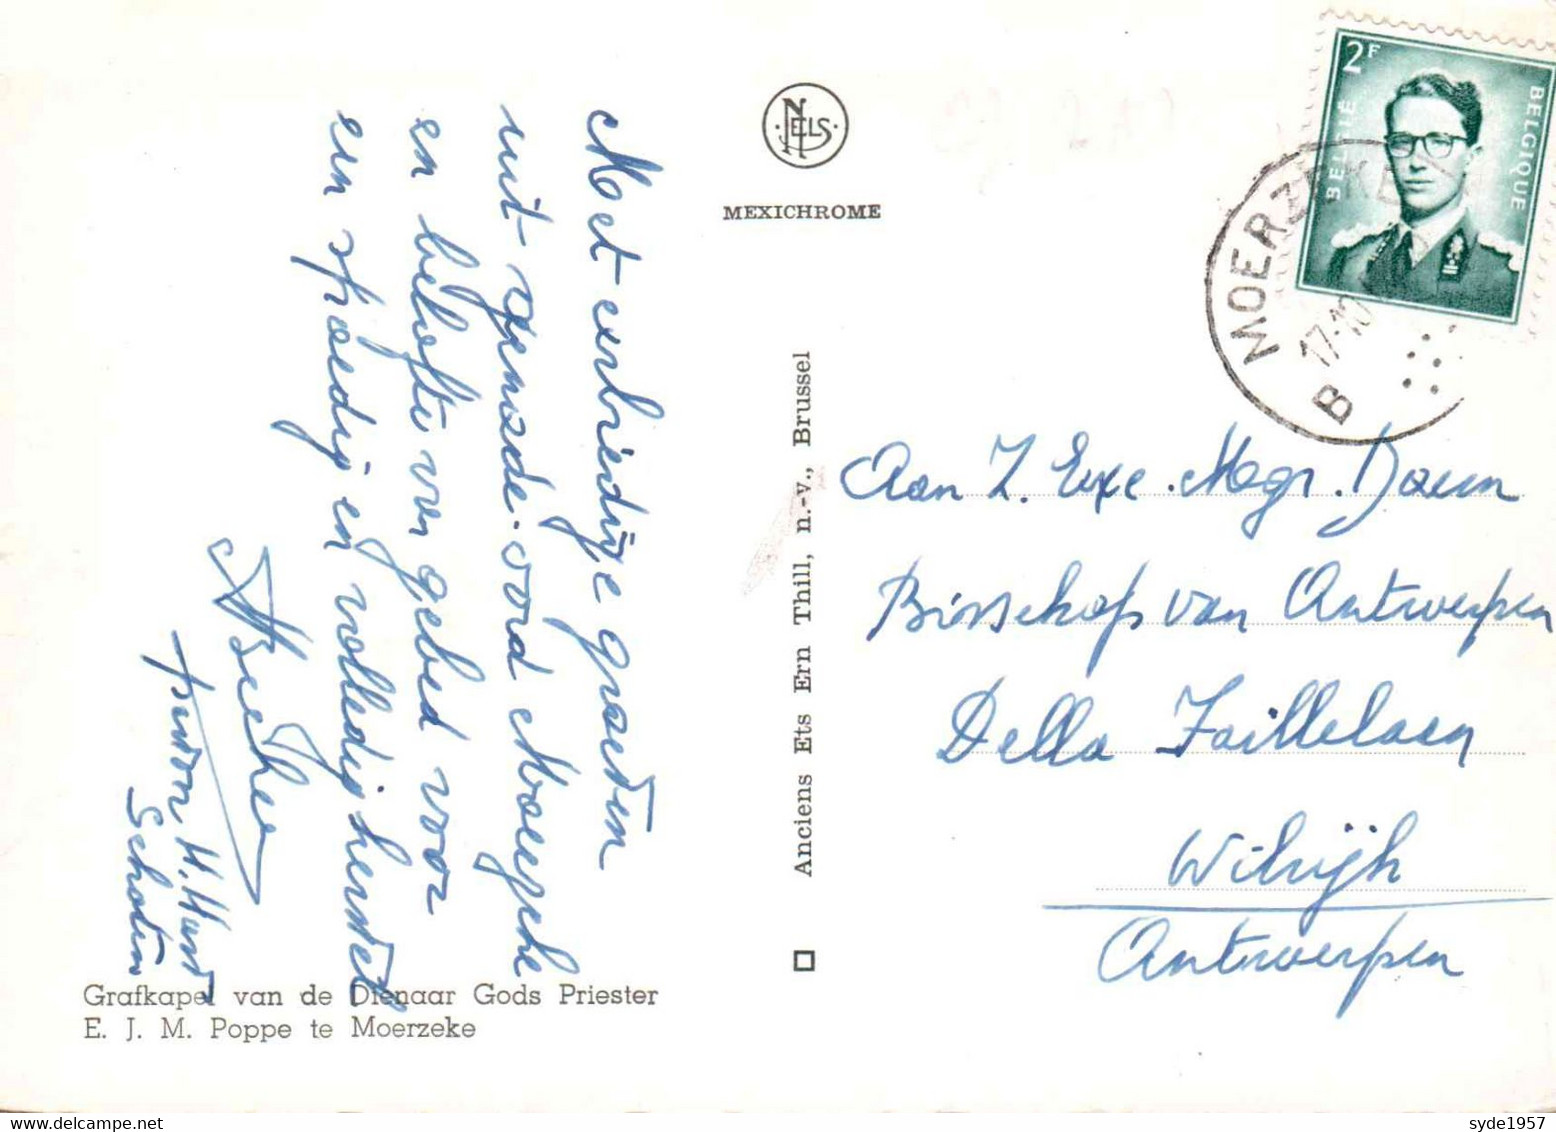 Met eerbiedige groeten
uit genade-oord Moerzeke
en belofte van gebed voor
een spoedig en volledig herstel
H. Hart
Schoten
Grafkapel van de Dienaar Gods Priester
E. J. M. Poppe te Moerzeke
NELS
MEXICHROME
Anciens Ets Ern Thill, n.-v., Brussel
2F
BELGIE BELGIQUE
MOERZEKE
17-10
B
Aan Z. Exc. Mgr. Daem
Bisschop van Antwerpen
Della Faillelaan
Wilrijk
Antwerpen
syde1957